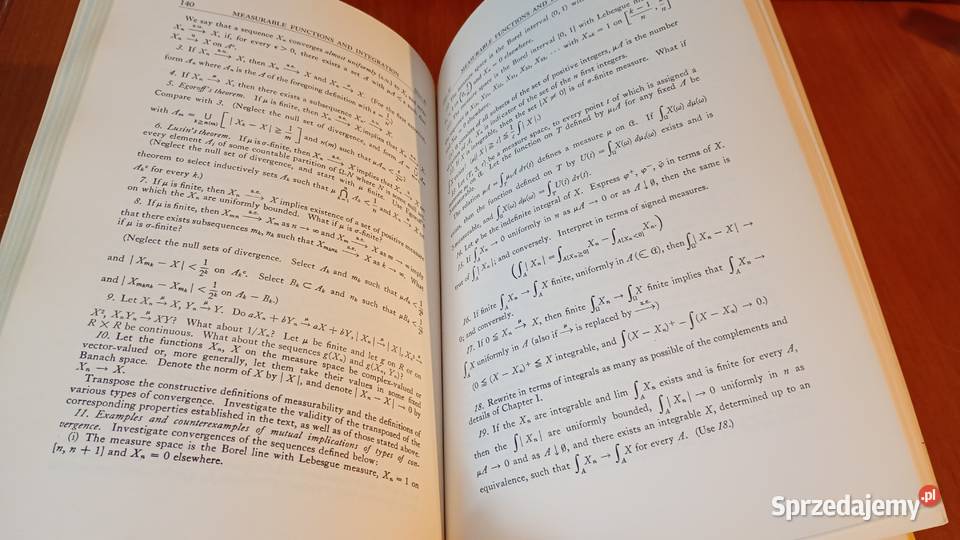 140
MEASURABLE FUNCTIONS AND INTEGRATION
We say that a sequence Xₙ converges almost uniformly
X, if, for every ϵ > 0, there exists a set A with
3. If Xₙ → X, then Xₙ → X and Xₙ → X. (For the first
form Aₘ where Aₘ is the A of the foregoing definition with
4. If Xₙ → X, then there exists a subsequence
5. Egoroff's theorem. If μ is finite, then Xₙ → X implies that Xₙ
Compare with 3. (Neglect the null set of divergence, and form A
with Aₘ = ⋃ [ | Xₖ − X | ≧ 1/m ] and n(m) such that μAₘ <
6. Lusin's theorem. If μ is σ-finite, then Xₙ → X implies that
every element Aⱼ of some countable partition of Ω-N where N is
(Neglect the null set of divergence, and start with μ finite. Use Egoroff's
theorem to select inductively sets Aₖ such that μ ⋂ Aₖ < 1/n and Xₙ → X on
Aₖᶜ for every k.)
7. If μ is finite, then Xₙ → X implies existence of a set of positive measure
on which the Xₙ are uniformly bounded. What if μ is σ-finite?
8. If μ is finite, then Xₘₙ → Xₘ as n → ∞ and Xₘ → X as m → ∞ imply
that there exists subsequences mₖ, nₖ such that Xₘₖₙₖ → X as k → ∞. What
if μ is σ-finite?
(Neglect the null sets of divergence. Select Aₖ and mₖ such that μAₖ < 1/2ᵏ
and | Xₘₖ − X | < 1/2ᵏ on Aₖᶜ. Select Bₖ ⊂ Aₖ and nₖ such that μBₖ < 1/2ᵏ
and | Xₘₖₙₖ − Xₘₖ | < 1/2ᵏ on Aₖ − Bₖ.)
9. Let Xₙ → X, Yₙ → Y. Do aXₙ + bYₙ → aX + bY, | Xₙ | → | X |, Xₙ² →
X², XₙYₙ → XY? What about 1/Xₙ? Let μ be finite and let g on R or on
R × R be continuous. What about the sequences g(Xₙ) and g(Xₙ, Yₙ)?
10. Let the functions Xₙ, X on the measure space be complex-valued or
vector-valued or, more generally, let them take their values in some fixed
Banach space. Denote the norm of X by | X |, and denote | Xₙ − X | → 0 by
Xₙ → X.
Transpose the constructive definitions of measurability and the definitions of
various types of convergence. Investigate the validity of the transposed of the
corresponding properties established in the text, as well as of those stated above.
11. Examples and counterexamples of mutual implications of types of convergence.
Investigate convergences of the sequences defined below:
(i) The measure space is the Borel line with Lebesgue measure, Xₙ = 1 on
[n, n + 1] and Xₙ = 0 elsewhere.
MEASURABLE FUNCTIONS AND
space is the Borel interval (0, 1) with
and Xₙ = 0 elsewhere.
space is the Borel interval [0, 1] with Lebesgue
with Xₙₖ = 1 on [ (k − 1)/n , k/n ]
of all subsets of the set of positive integers, μA is the number
Xₙ is indicator of the set of the n first integers.
integrable, then the set [X ≠ 0] is of σ-finite measure.
be a measure space, to every point t of which is assigned a
Let the function on T defined by μₜA for any fixed A be
The relation μA = ∫ μₜA dτ(t) defines a measure μ on 𝒜. If ∫ X(ω) dμ(ω)
then the function defined on T by U(t) = ∫ X(ω) dμₜ(ω) exists and is
measurable, and ∫ X(ω) dμ(ω) = ∫ U(t) dτ(t).
14. Let φ be the indefinite integral of X. Express φ⁺, φ⁻, φ̄ in terms of X.
15. If ∫ Xₙ → 0 uniformly in n as μA → 0 or as A ↓ ∅, then the same is
true of ∫ | Xₙ |; and conversely. Interpret in terms of signed measures.
( ∫ | Xₙ | = ∫ Xₙ − ∫ Xₙ. )
16. If finite ∫ Xₙ → ∫ X finite, uniformly in A (∈ 𝒜), then ∫ | Xₙ − X | →
0; and conversely.
17. If 0 ≦ Xₙ → X, then finite ∫ Xₙ → ∫ X finite implies that ∫ Xₙ →
∫ X uniformly in A (also if → is replaced by →)
(0 ≦ (X − Xₙ)⁺ ≦ X integrable, and ∫(X − Xₙ)⁺ − ∫(X − Xₙ) → 0.)
18. Rewrite in terms of integrals as many as possible of the complements and
details of Chapter I.
19. If the Xₙ are integrable and lim ∫ Xₙ exists and is finite for every A,
then the ∫ | Xₙ | are uniformly bounded, ∫ | Xₙ | → 0 uniformly in n as
μA → 0 and as A ↓ ∅, and there exists an integrable X, determined up to an
equivalence, such that ∫ Xₙ → ∫ X for every A. (Use 18.)
Sprzedajemy.pl